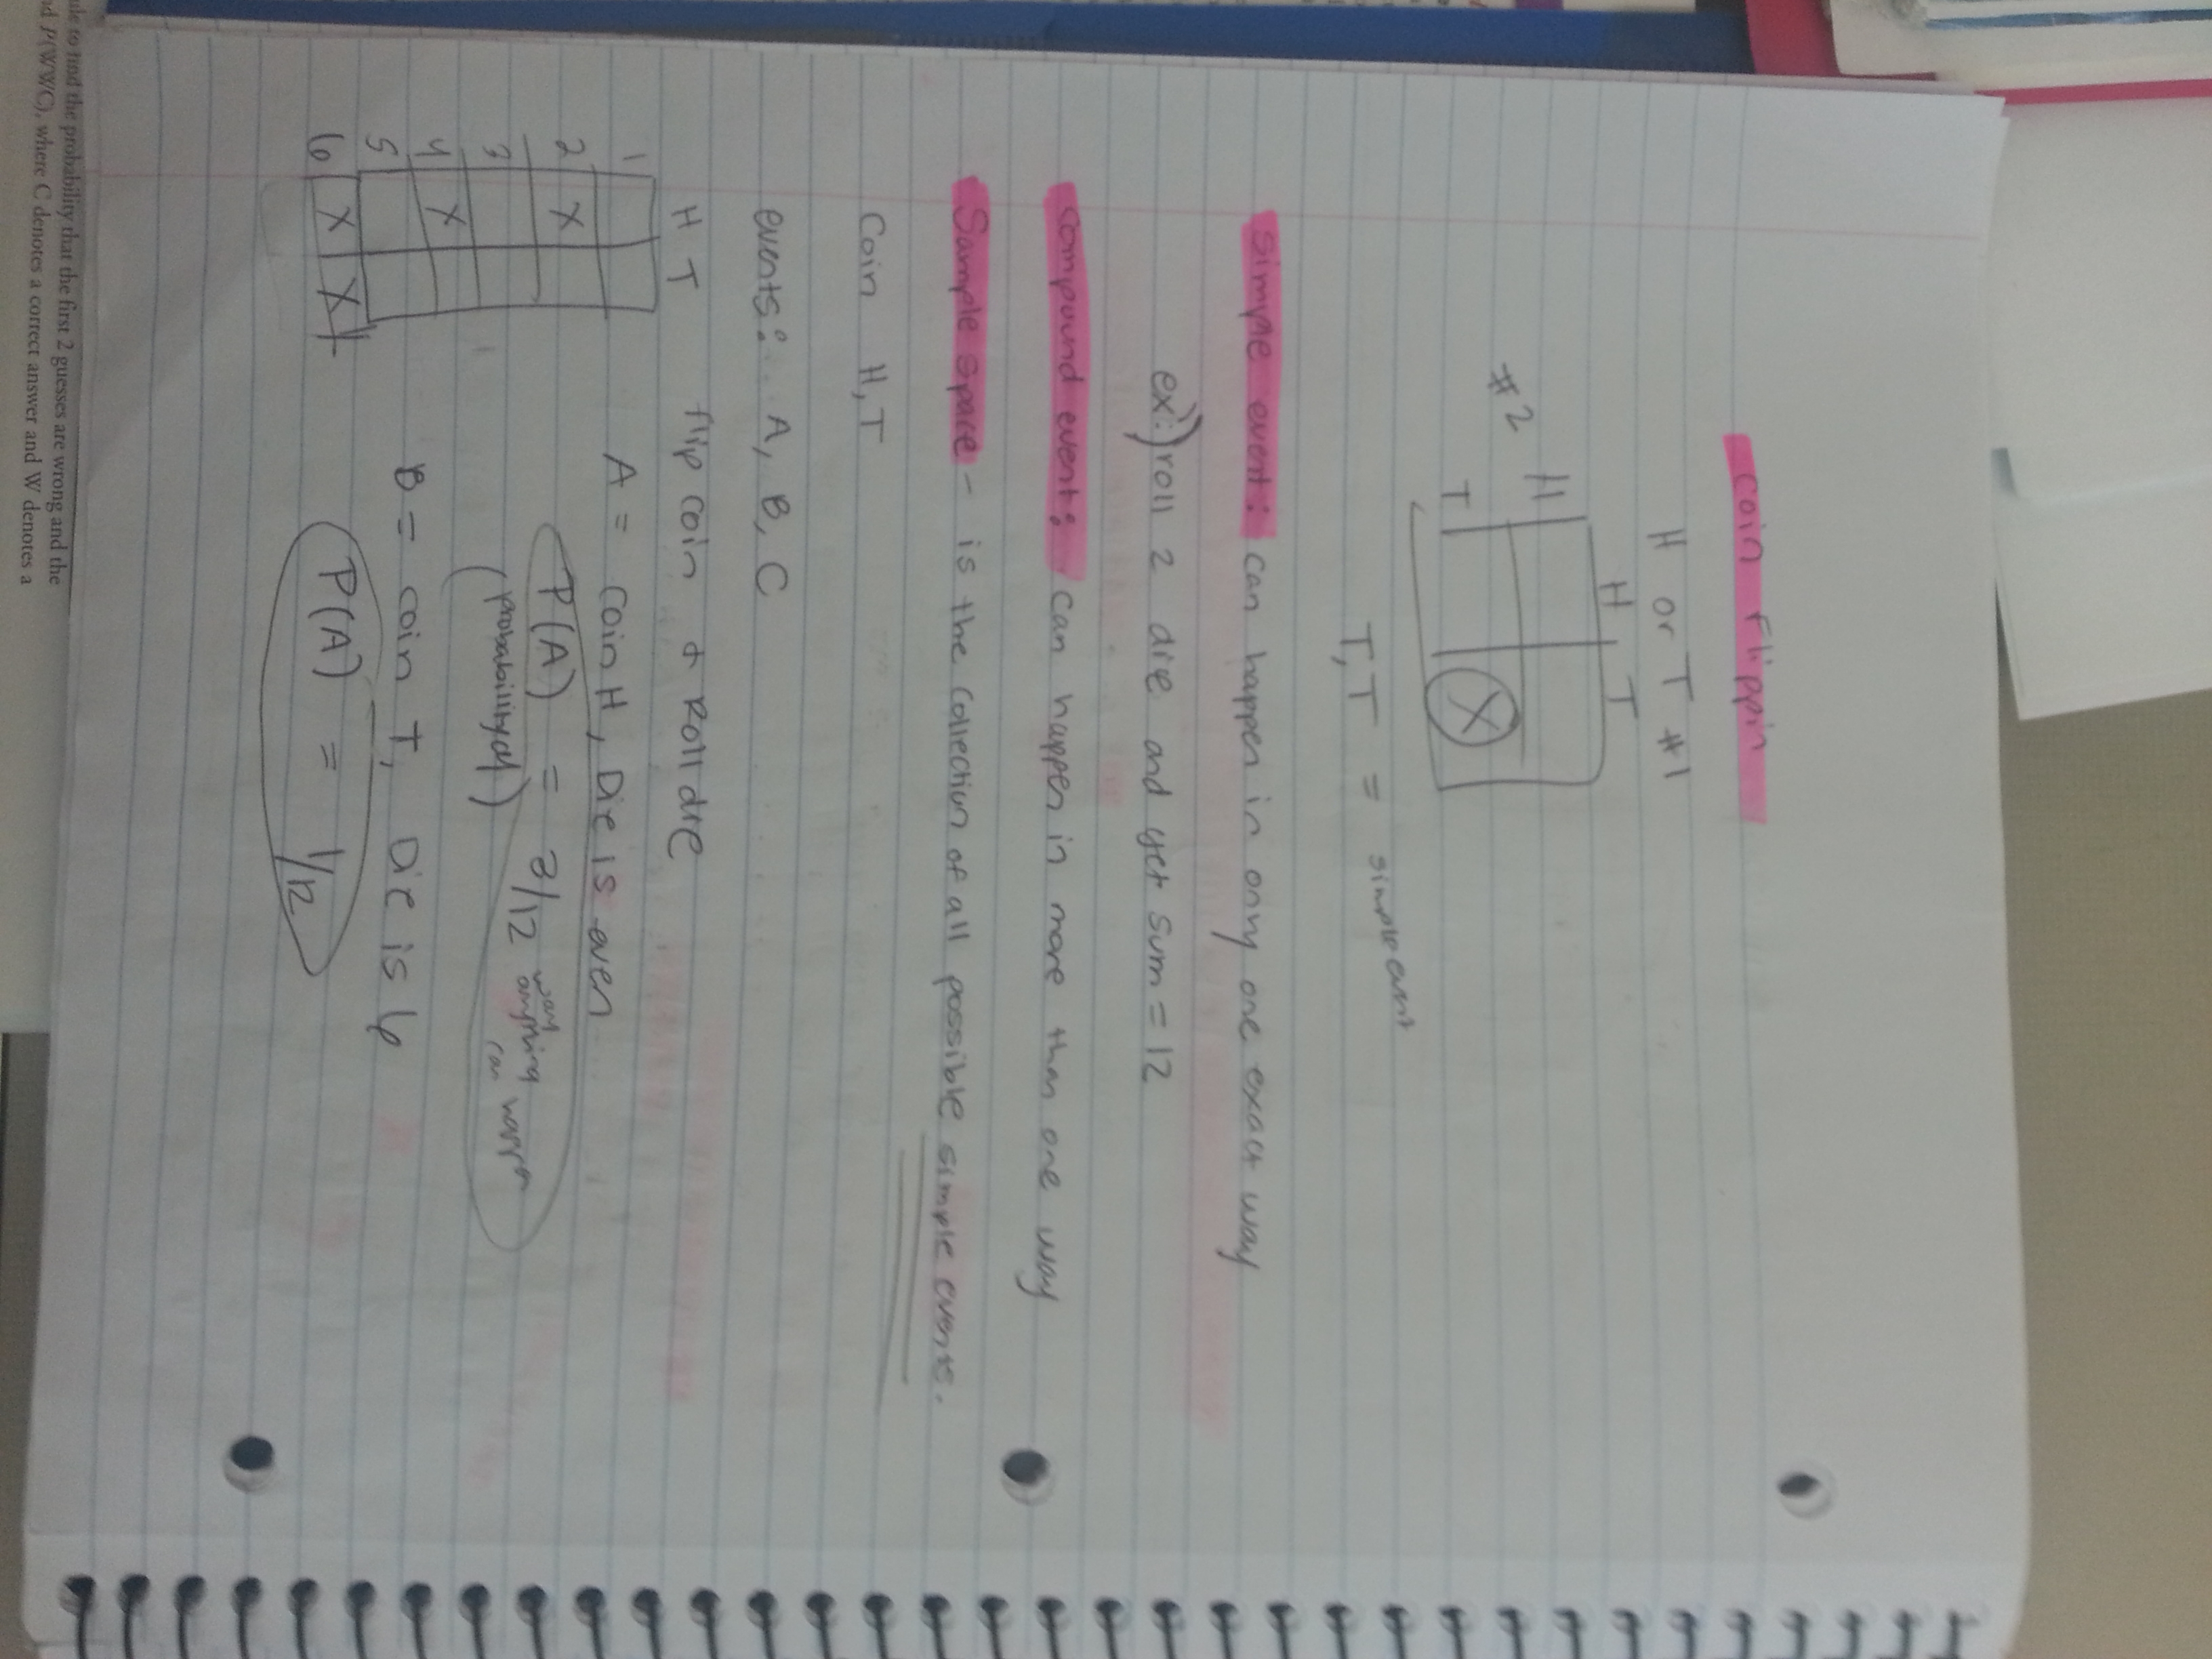 Coin Flippin
H or T #1
H T
#2 H
T X
T, T = simple event
Simple event: can happen in only one exact way
ex:) roll 2 die and get sum = 12
Compound event: can happen in more then one way
Sample space - is the collection of all possible simple events.
Coin H, T
events: A, B, C
H T flip coin & Roll die
1 A = coin H, Die is even
2 X P(A) = 3/12 way anything can happen
3 (probability of)
4 X B = coin T, Die is 6
5
6 X X P(A) = 1/12
ule to find the probability that the first 2 guesses are wrong and the
nd P(WWC), where C denotes a correct answer and W denotes a